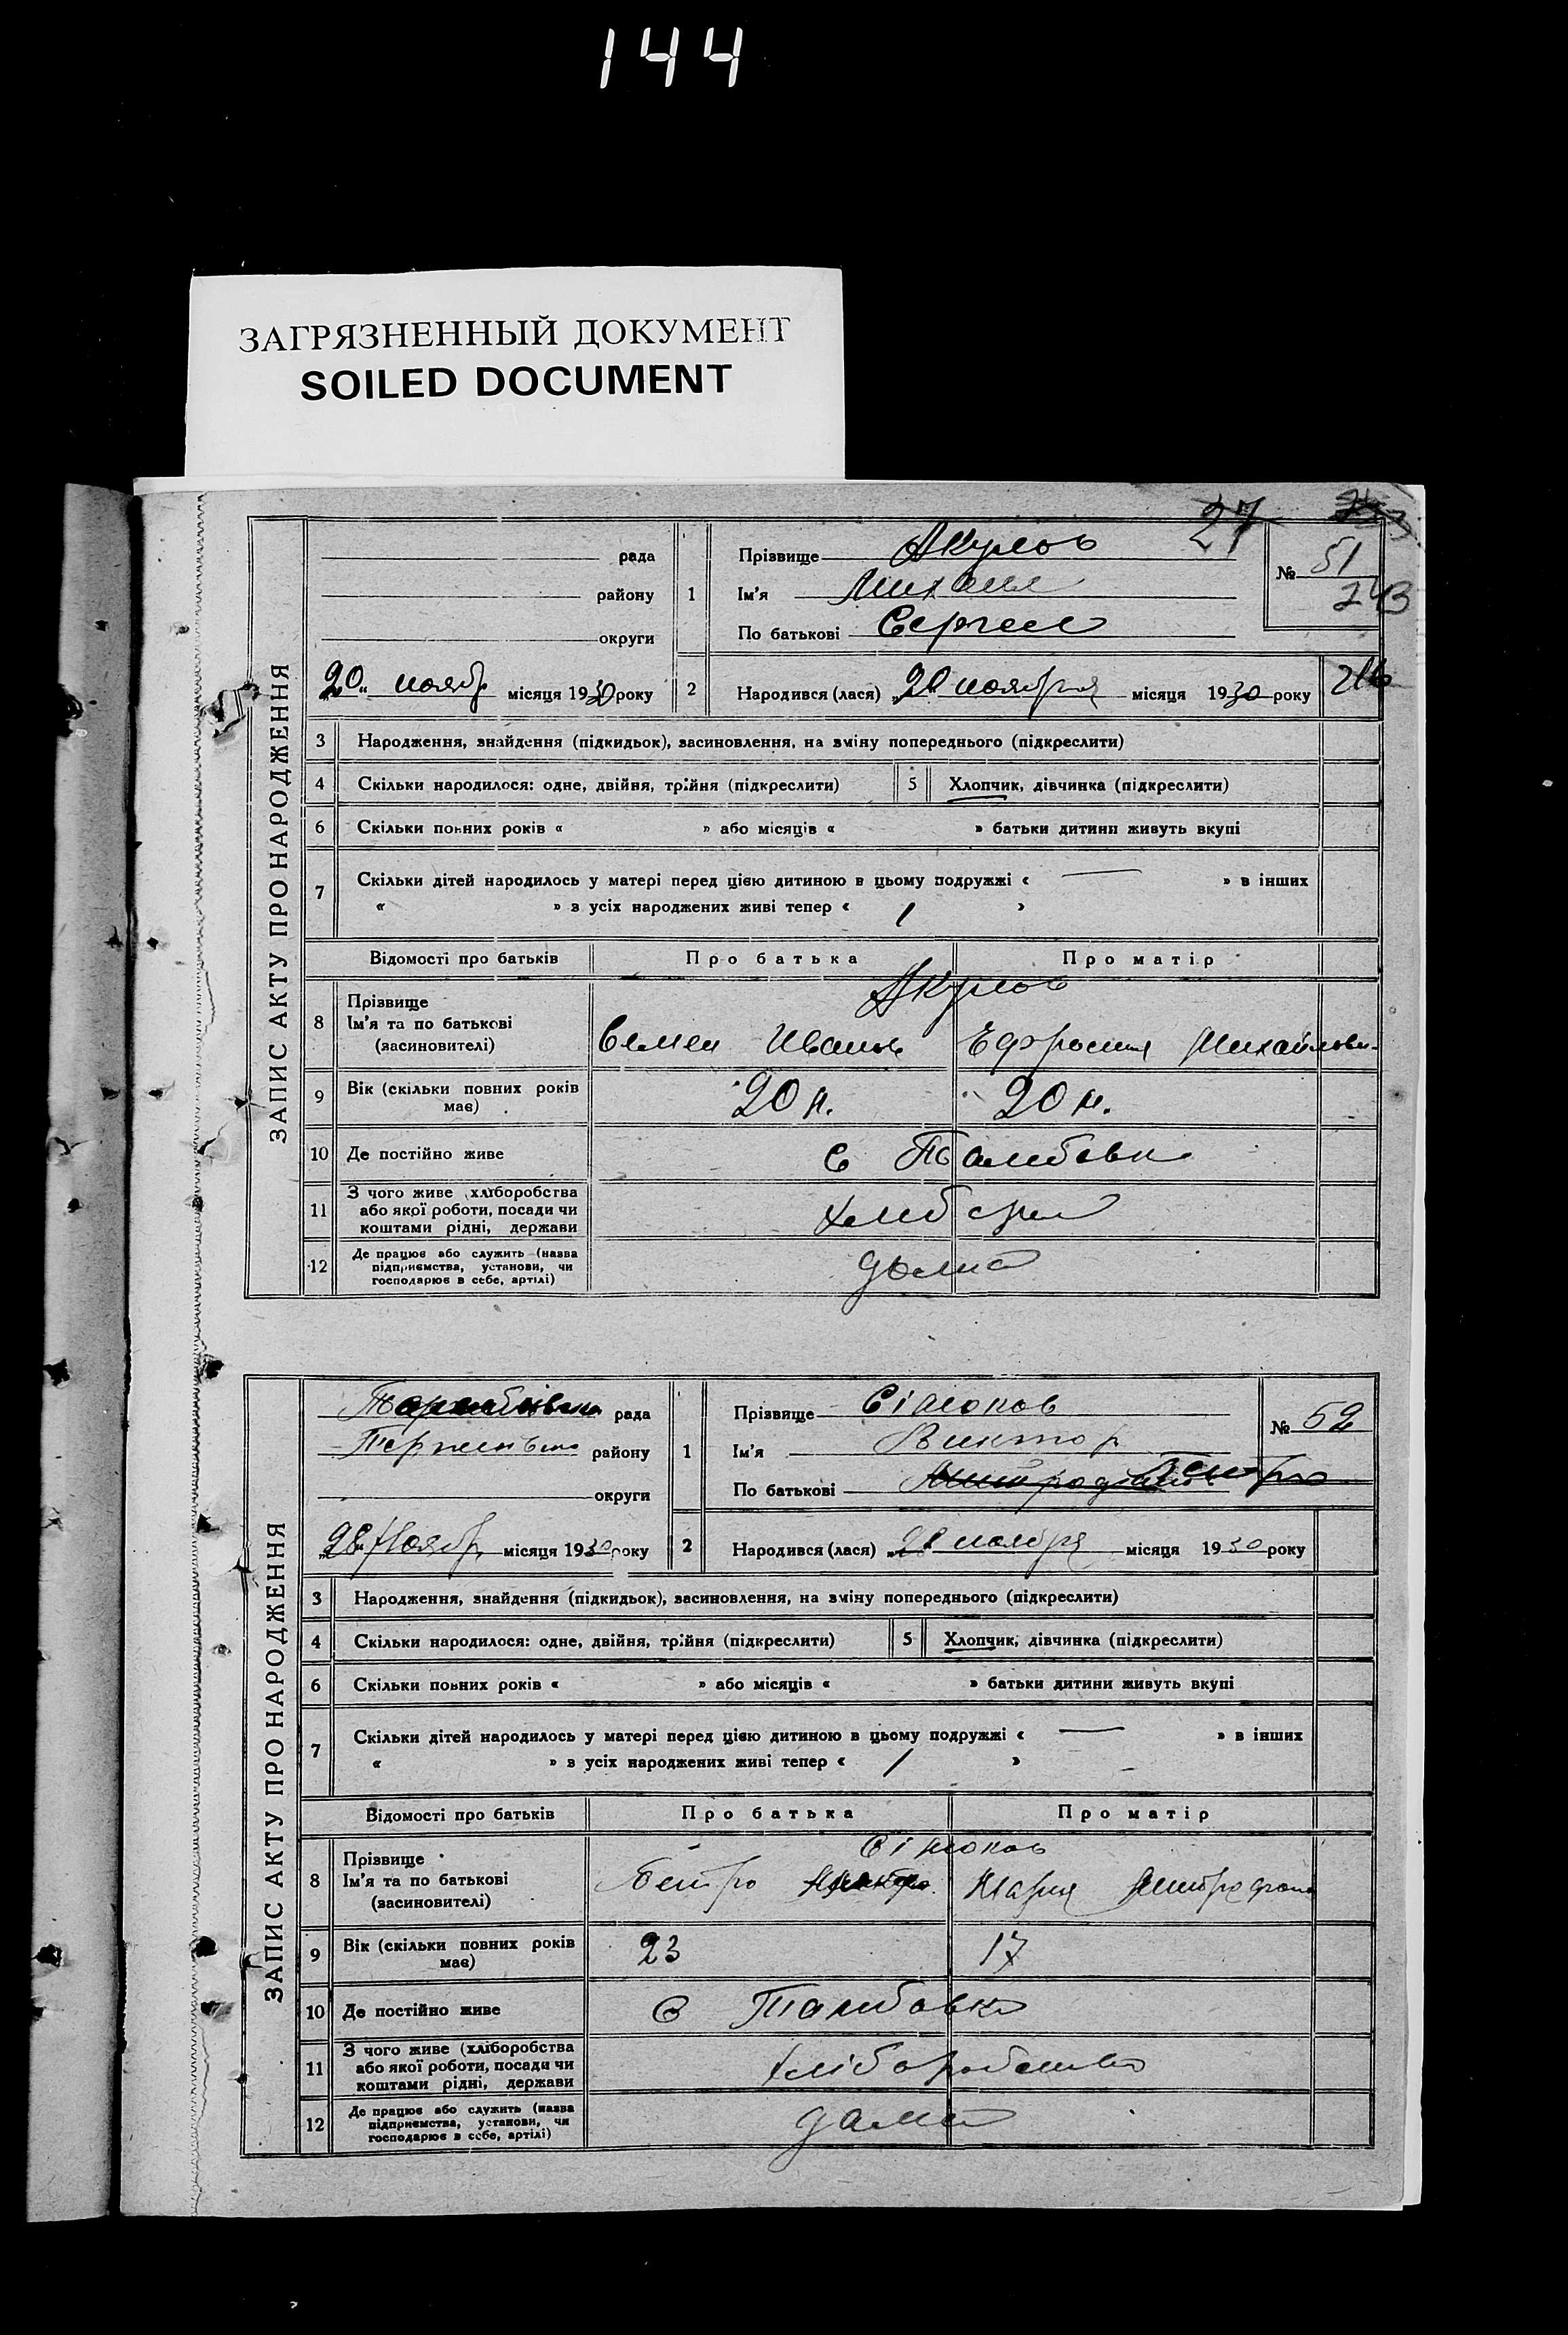 144
ЗАГРЯЗНЕННЫЙ ДОКУМЕНТ
SOILED DOCUMENT
27
ЗАПИС АКТУ ПРО НАРОДЖЕННЯ
рада
району
округи
„20“ ноябр місяця 1930 року
1 Прізвище Акулов
Ім'я Михаил
По батькові Сергеев
№ 51
243
2 Народився (лася) „20 ноября місяця 1930 року
3 Народження, знайдення (підкидьок), засиновлення, на зміну попереднього (підкреслити)
4 Скільки народилося: одне, двійня, трійня (підкреслити) 5 Хлопчик, дівчинка (підкреслити)
6 Скільки повних років « » або місяців « » батьки дитини живуть вкупі
7 Скільки дітей народилось у матері перед цією дитиною в цьому подружжі « — » в інших
« » з усіх народжених живі тепер « 1 »
Відомості про батьків Про батька Про матір
Акулов
8 Прізвище
Ім'я та по батькові
(засиновителі)
Семен Иванов Ефросиня Михайлови
9 Вік (скільки повних років
має)
20 л. 20 л.
10 Де постійно живе С
11 З чого живе (хліборобства
або якої роботи, посади чи
коштами рідні, держави
12 Де працює або служить (назва
підприємства, установи, чи
господарює в себе, артілі)
дома
ЗАПИС АКТУ ПРО НАРОДЖЕННЯ
рада
району
округи
„28“ Ноябр місяця 1930 року
1 Прізвище
Ім'я Виктор
По батькові Петро
№ 52
2 Народився (лася) „28 ноября місяця 1930 року
3 Народження, знайдення (підкидьок), засиновлення, на зміну попереднього (підкреслити)
4 Скільки народилося: одне, двійня, трійня (підкреслити) 5 Хлопчик, дівчинка (підкреслити)
6 Скільки повних років « » або місяців « » батьки дитини живуть вкупі
7 Скільки дітей народилось у матері перед цією дитиною в цьому подружжі « — » в інших
« » з усіх народжених живі тепер « 1 »
Відомості про батьків Про батька Про матір
8 Прізвище
Ім'я та по батькові
(засиновителі)
Петро Мария Митрофано
9 Вік (скільки повних років
має)
23 17
10 Де постійно живе С
11 З чого живе (хліборобства
або якої роботи, посади чи
коштами рідні, держави
хліборобство
12 Де працює або служить (назва
підприємства, установи, чи
господарює в себе, артілі)
дома